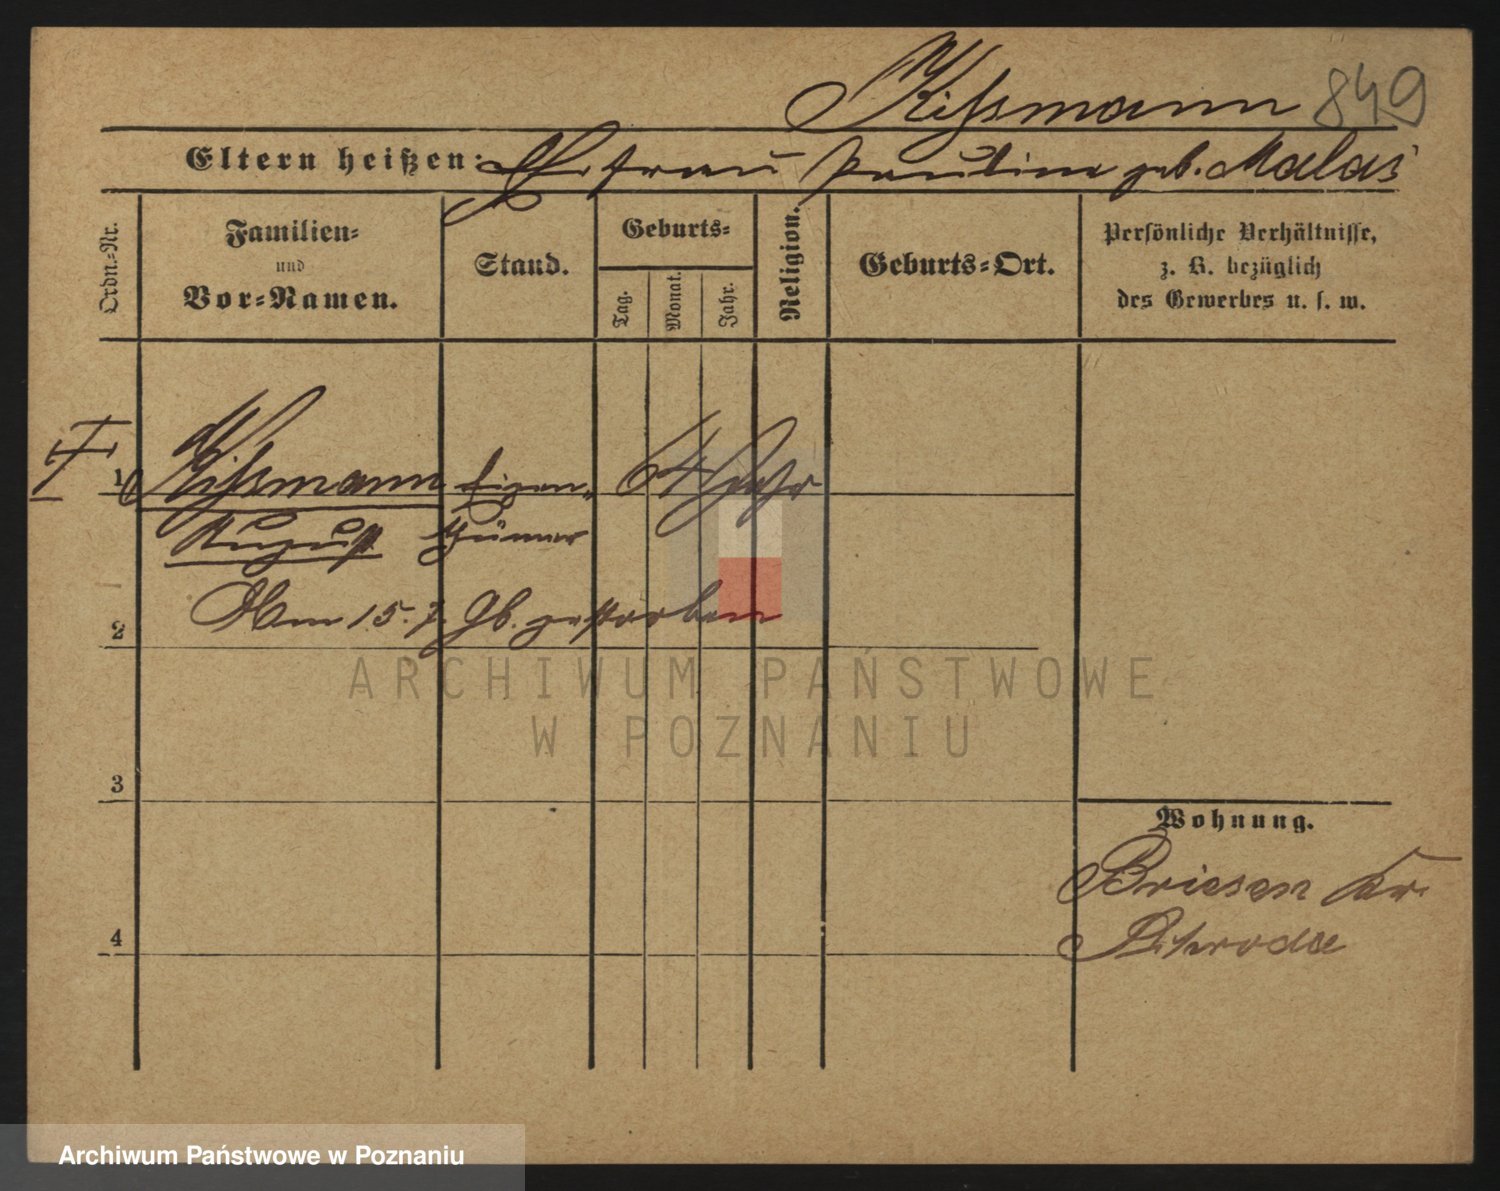 Kissmann 849
Eltern heißen: Ehefrau Pauline geb. Malas
Ordn.-Nr.
Familien-
und
Vor-Namen.
Stand.
Geburts-
Tag.
Monat.
Jahr.
Religion.
Geburts-Ort.
Persönliche Verhältnisse,
z. B. bezüglich
des Gewerbes u. s. w.
1 Kissmann Eigen- 64 Jahr
August thümer
Am 15. 7. gestorben
2
3
4
Wohnung.
Briesen Kr.
ARCHIWUM PAŃSTWOWE
W POZNANIU
Archiwum Państwowe w Poznaniu